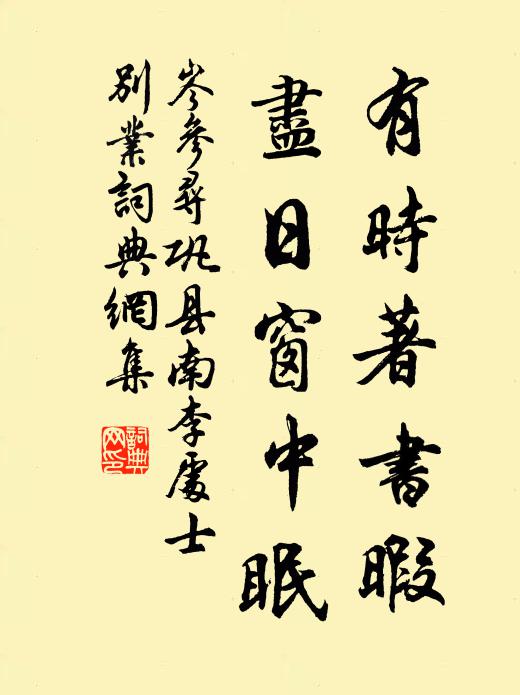 有時著書暇
盡日窗中眠
岑參尋巩县南李處士
別業詞典網集
詞典網印